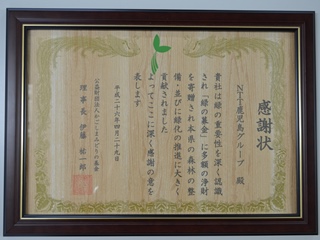 感謝状
NTT鹿児島グループ 殿
貴社は緑の重要性を深く認識
され「緑の募金」に多額の浄財
を寄贈され本県の森林の整
備・並びに緑化の推進に大きく
貢献されました
よってここに深く感謝の意を
表します
平成二十六年四月二十九日
公益財団法人かごしまみどりの基金
理事長 伊藤祐一郎